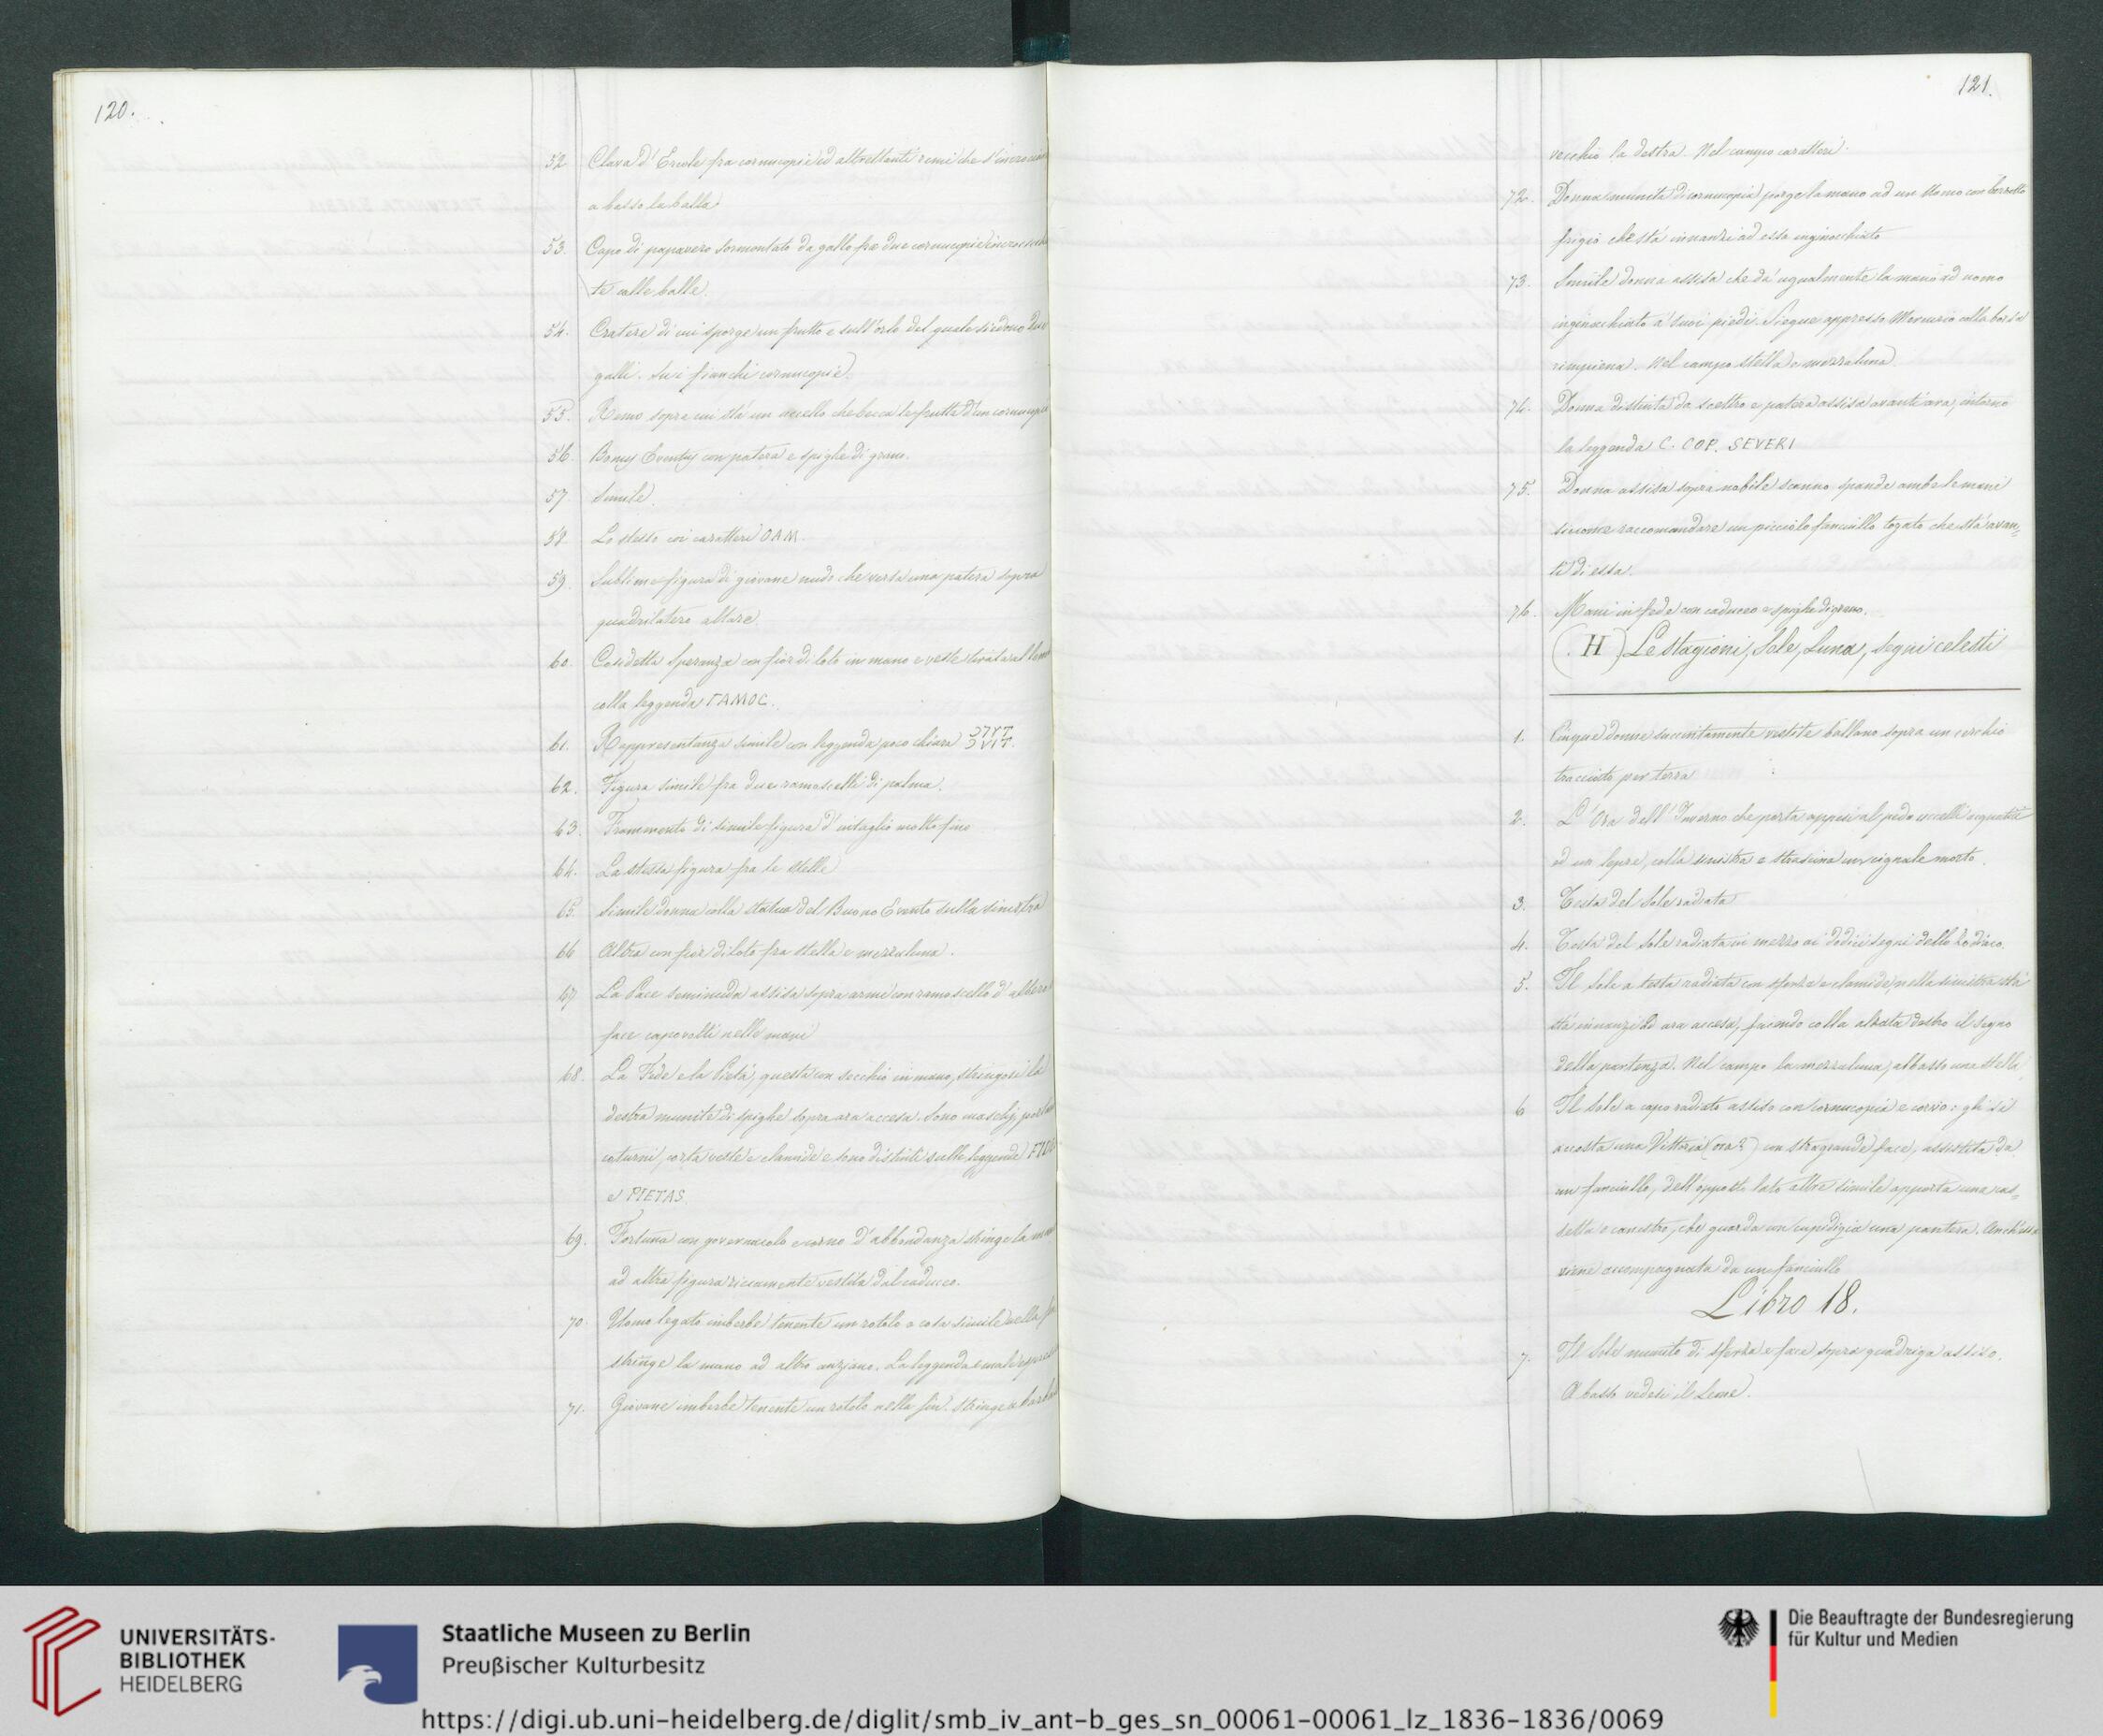 120.
52 Clava d'Ercole fra cornucopie ed altrettanti remi che s'incrociano
a basso la balla
53. Capo di papavero sormontato da gallo fra due cornucopie incrociccia
te colle balle.
54. Cratere di cui sporge un frutto e sull'orlo del quale siedono due
galli. Su i fianchi cornucopie.
55. Remo sopra cui stá un uccello che becca le frutta d'un cornucopio
56. Bonus Eventus con patera e spighe di grano.
57 Simile.
58. Lo stesso coi caratteri OAM.
59. Sublime figura di giovane nudo che versa una patera sopra
quadrilatero altare.
60. Cosidetta Speranza con fior di loto in mano e veste tirata al
colla leggenda ΓAMOC.
61. Rappresentanza simile con leggenda poco chiara
62. Figura simile fra due ramoscelli di palma.
63. Frammento di simile figura d'intaglio molto fino
64. La stessa figura fra le stelle
65. Simile donna colla statua del Buono Evento sulla sinistra
66 Altra con fior di loto fra stella e mezzaluna.
67 La Pace seminuda assisa sopra armi con ramoscello d'albero
face capovolti nelle mani
68. La Fede e la Pietá, questa con secchio in mano, stringosi la
destra munite di spighe sopra ara accesa. Sono maschj, portano
coturni, corta veste e clamide e sono distinti sulle leggende FIDES
e PIETAS
69. Fortuna con governacolo e corno d'abbondanza stringe la mano
ad altra figura riccamente vestita dal caduceo.
70. Uomo togato imberbe tenente un rotolo o cosa simile nella
stringe la mano ad altro anziano. La leggenda é mal espressa
71. Giovane imberbe tenente un rotolo nella sin. stringe a barbato
121.
vecchio la destra. Nel campo caratteri.
72. Donna munita di cornucopia porge la mano ad un Uomo con berretto
frigio che stá innanzi ad essa inginocchiato
73. Simile donna assisa che dá ugualmente la mano ad uomo
inginocchiato a' suoi piedi. Siegue appresso Mercurio colla borsa
riempiena. Nel campo stella e mezzaluna.
74. Donna distinta da scettro e patera assisa avanti ara, intorno
la leggenda C. COP. SEVERI
75. Donna assisa sopra nobile scanno spande ambe le mani
siccome raccomandare un piccolo fanciullo togato che stá avan=
ti di essa.
76. Mani in fede con caduceo e spighe di grano.
(H) Le stagioni, Sole, Luna, segni celesti
1. Cinque donne succintamente vestite ballano sopra un cerchio
tracciato per terra
2. L'Ora dell'Inverno che porta appesi al pedo uccelli acquatici
ed un lepre, colla sinistra e strascina un cignale morto.
3. Testa del Sole radiata
4. Testa del Sole radiata in mezzo ai dodici segni dello Zodiaco.
5. Il Sole a testa radiata con sferza e clamide nella sinistra stá
stá innanzi ad ara accesa, facendo colla alzata destra il segno
della partenza. Nel campo la mezzaluna, abbasso una stella
6 Il Sole a capo radiato assiso con cornucopia e corvo: gli si
accosta una Vittoria (ora?) con stragrande face, assistita da
un fanciullo, dell'opposto lato altra simile apporta una cas=
setta o canestro, che guarda con cupidigia una pantera. Anch'essa
viene accompagnata da un fanciullo
Libro 18.
7. Il Sole munito di sferza e face sopra quadriga assiso.
A basso vedesi il Leone.
UNIVERSITÄTS-
BIBLIOTHEK
HEIDELBERG
Staatliche Museen zu Berlin
Preußischer Kulturbesitz
Die Beauftragte der Bundesregierung
für Kultur und Medien
https://digi.ub.uni-heidelberg.de/diglit/smb_iv_ant-b_ges_sn_00061-00061_lz_1836-1836/0069